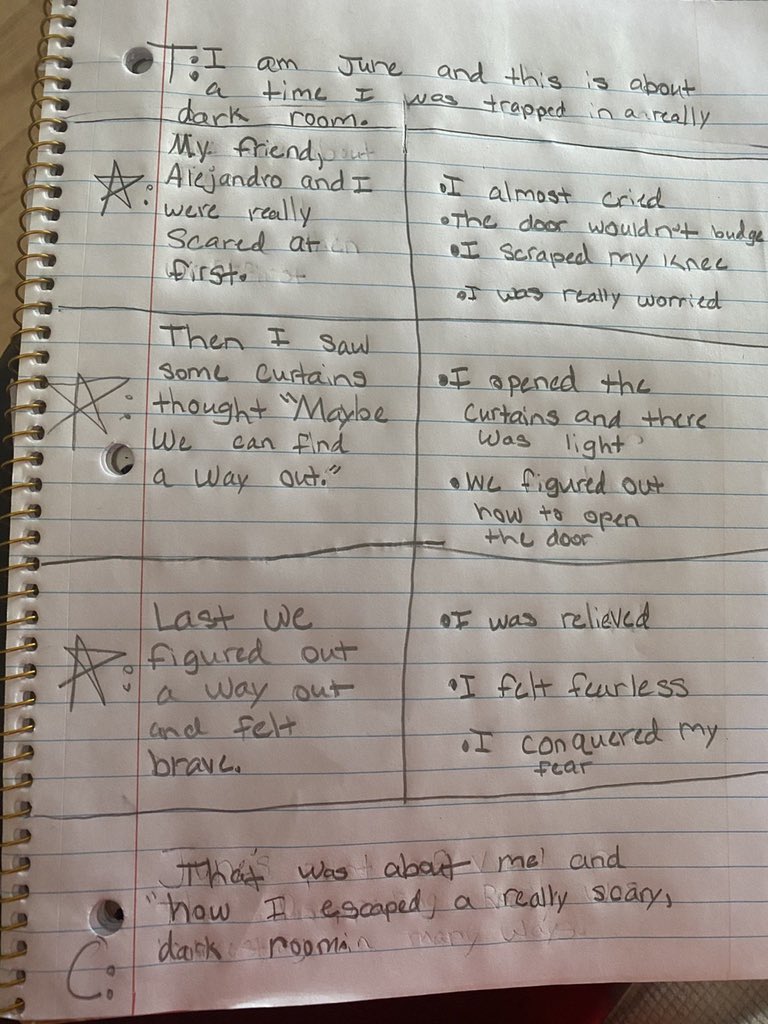 T: I am June and this is about
a time I was trapped in a really
dark room.
My friend,
Alejandro and I
were really
Scared at
first.
• I almost cried
• The door wouldn't budge
• I scraped my knee
• I was really worried
Then I saw
some curtains
thought "Maybe
We can find
a way out."
• I opened the
curtains and there
was light
• We figured out
how to open
the door
Last we
figured out
a way out
and felt
brave.
• I was relieved
• I felt fearless
• I conquered my
fear
That was about me and
how I escaped, a really scary,
dark room
C: